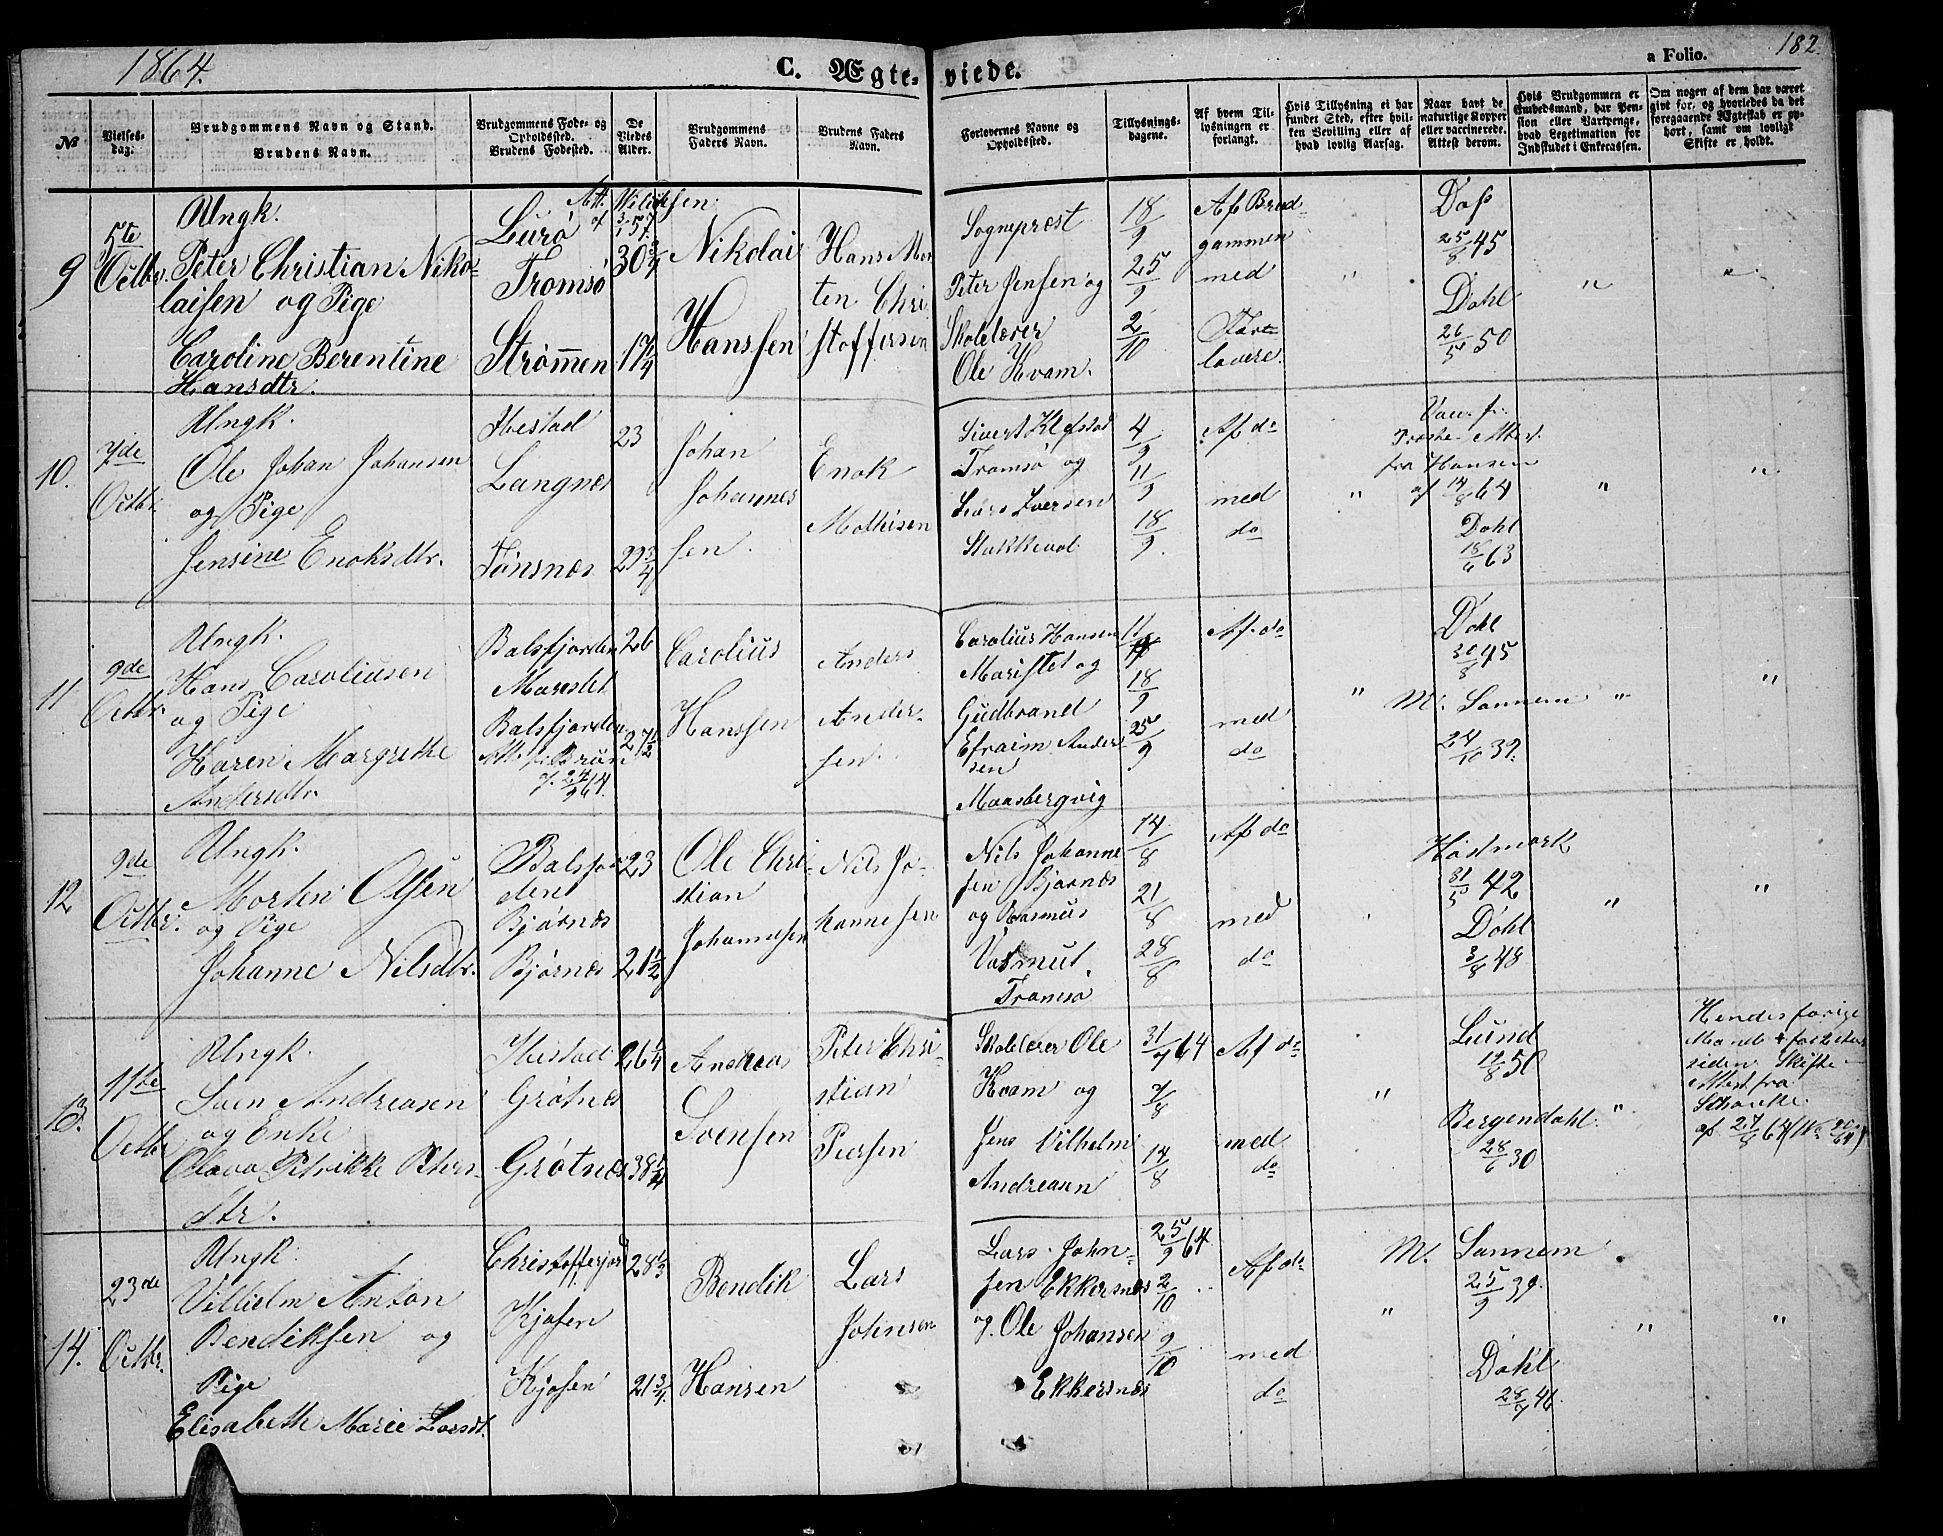 1864.
C. Ægteviede.
a Folio.
182.
No
Vielses-
dag.
Brudgommens Navn og Stand.
Brudens Navn.
Brudgommens Føde- og
Opholdssted.
Brudens Fødested.
De
Viedes
Alder.
Brudgommens
Faders Navn.
Brudens Faders
Navn.
Forlovernes Navne og
Opholdssted.
Tillysnings-
dagene.
Af hvem Til-
lysningen er
forlangt.
Hvis Tillysning ei har
fundet Sted, efter hvil-
ken Bevilling eller af
hvad lovlig Aarsag.
Naar havt de
naturlige Kopper
eller vaccinerede.
Attest derom.
Hvis Brudgommen er
Embedsmand, har Pen-
sion eller Vartpenge,
hvad Legitimation for
Indskudet i Enkecassen.
Om nogen af dem har været
givt før, og hvorledes da det
foregaaende Ægteskab er op-
hørt, samt om lovligt
Skifte er holdt.
9
5te
Octbr.
Ungk.
Peter Christian Niko-
laisen og Pige
Caroline Berentine
Hansdtr.
Lurø
Tromsø
Strømmen
30 3/4
17 1/4
Nikolai
Hanssen
Hans Mor
ten Chri
stoffersen
Sogneprest
Peter Jensen og
Skolelærer
Ole Kvam.
18/9
25/9
2/10
Af Brud-
gammen
med
Forlovere.
Dass
25/8 45
Dahl
26/5 50
"
"
"
10.
7de
Octbr.
Ungk.
Ole Johan Johansen
og Pige
Jensine Enoksdtr.
Ibestad
Langnæs
Tønsnæs
23
29 3/4
Johan
Johannes
sen.
Enok
Mathisen
Sivert Klefstad
Tromsø og
Lars Iversen
Stakkevol
4/9
11/9
18/9
Af do
med
do
"
Vacc. fr.
Attest
fra Hansen
af 14/8 64
Dahl
18/6 63
"
"
11
9de
Octbr.
Ungk.
Hans Caroliusen
og Pige
Karen Margrethe
Andersdtr.
Balsfjorden
Marestet
Balsfjorden
26
27 1/2
Carolius
Hanssen
Anders
Ander-
sen.
Carolius Hansen
Maristet og
Gudbrand
Efraim Ander
sen
Maasbergvig
11/9
18/9
25/9
Af do
med
do
"
Dahl
30/8 45
M. Sannem
24/10 39.
"
"
12
9de
Octbr.
Ungk.
Morten Olsen
og Pige
Johanne Nilsdtr.
Balsfjor
den
Bjørnæs
Bjørnæs
23
21 1/2
Ole Chri-
stian
Johannesen
Nils Jo-
hannesen
Nils Johanne
sen Bjørnæs
og Rasmus
Tromsø
14/8
21/8
28/8
Af do
med
do
Høstmark
31/5 42
Dahl
3/8 48
"
"
13.
11te
Octbr
Ungk.
Sven Andreasen
og Enke
Olava Petrikke Peters-
dtr.
Ibestad
Grøtnæs
Grøtnæs
26 1/4
38 1/4
Andreas
Svensen
Peter Chri-
stian
Persen
Skolelærer Ole
Kvam og
Jens Vilhelm
Andreasen
31/7 64
7/8
14/8
Af do
med
do
"
Lund
19/8 30
Bergendahl.
28/6 30
"
Hendes forige
Mand + for 2 Aar
siden Skifte
Attest fra
af 27/8 64
14.
23de
Octbr.
Ungk
Vilhelm Anton
Bendiksen og
Pige
Elisabeth Marie Larsdt.
Christofferjord
Kjosen
Kjosen
28 1/3
21 3/4
Bendik
Hansen
Lars
Johnsen
Lars John-
sen Ekkersnæs
og Ole Johansen
Ekkersnæs
25/9 64
2/10
9/10
Af do
med
do
"
M. Sannem
25/9 39.
Dahl
28/7 46
"
"